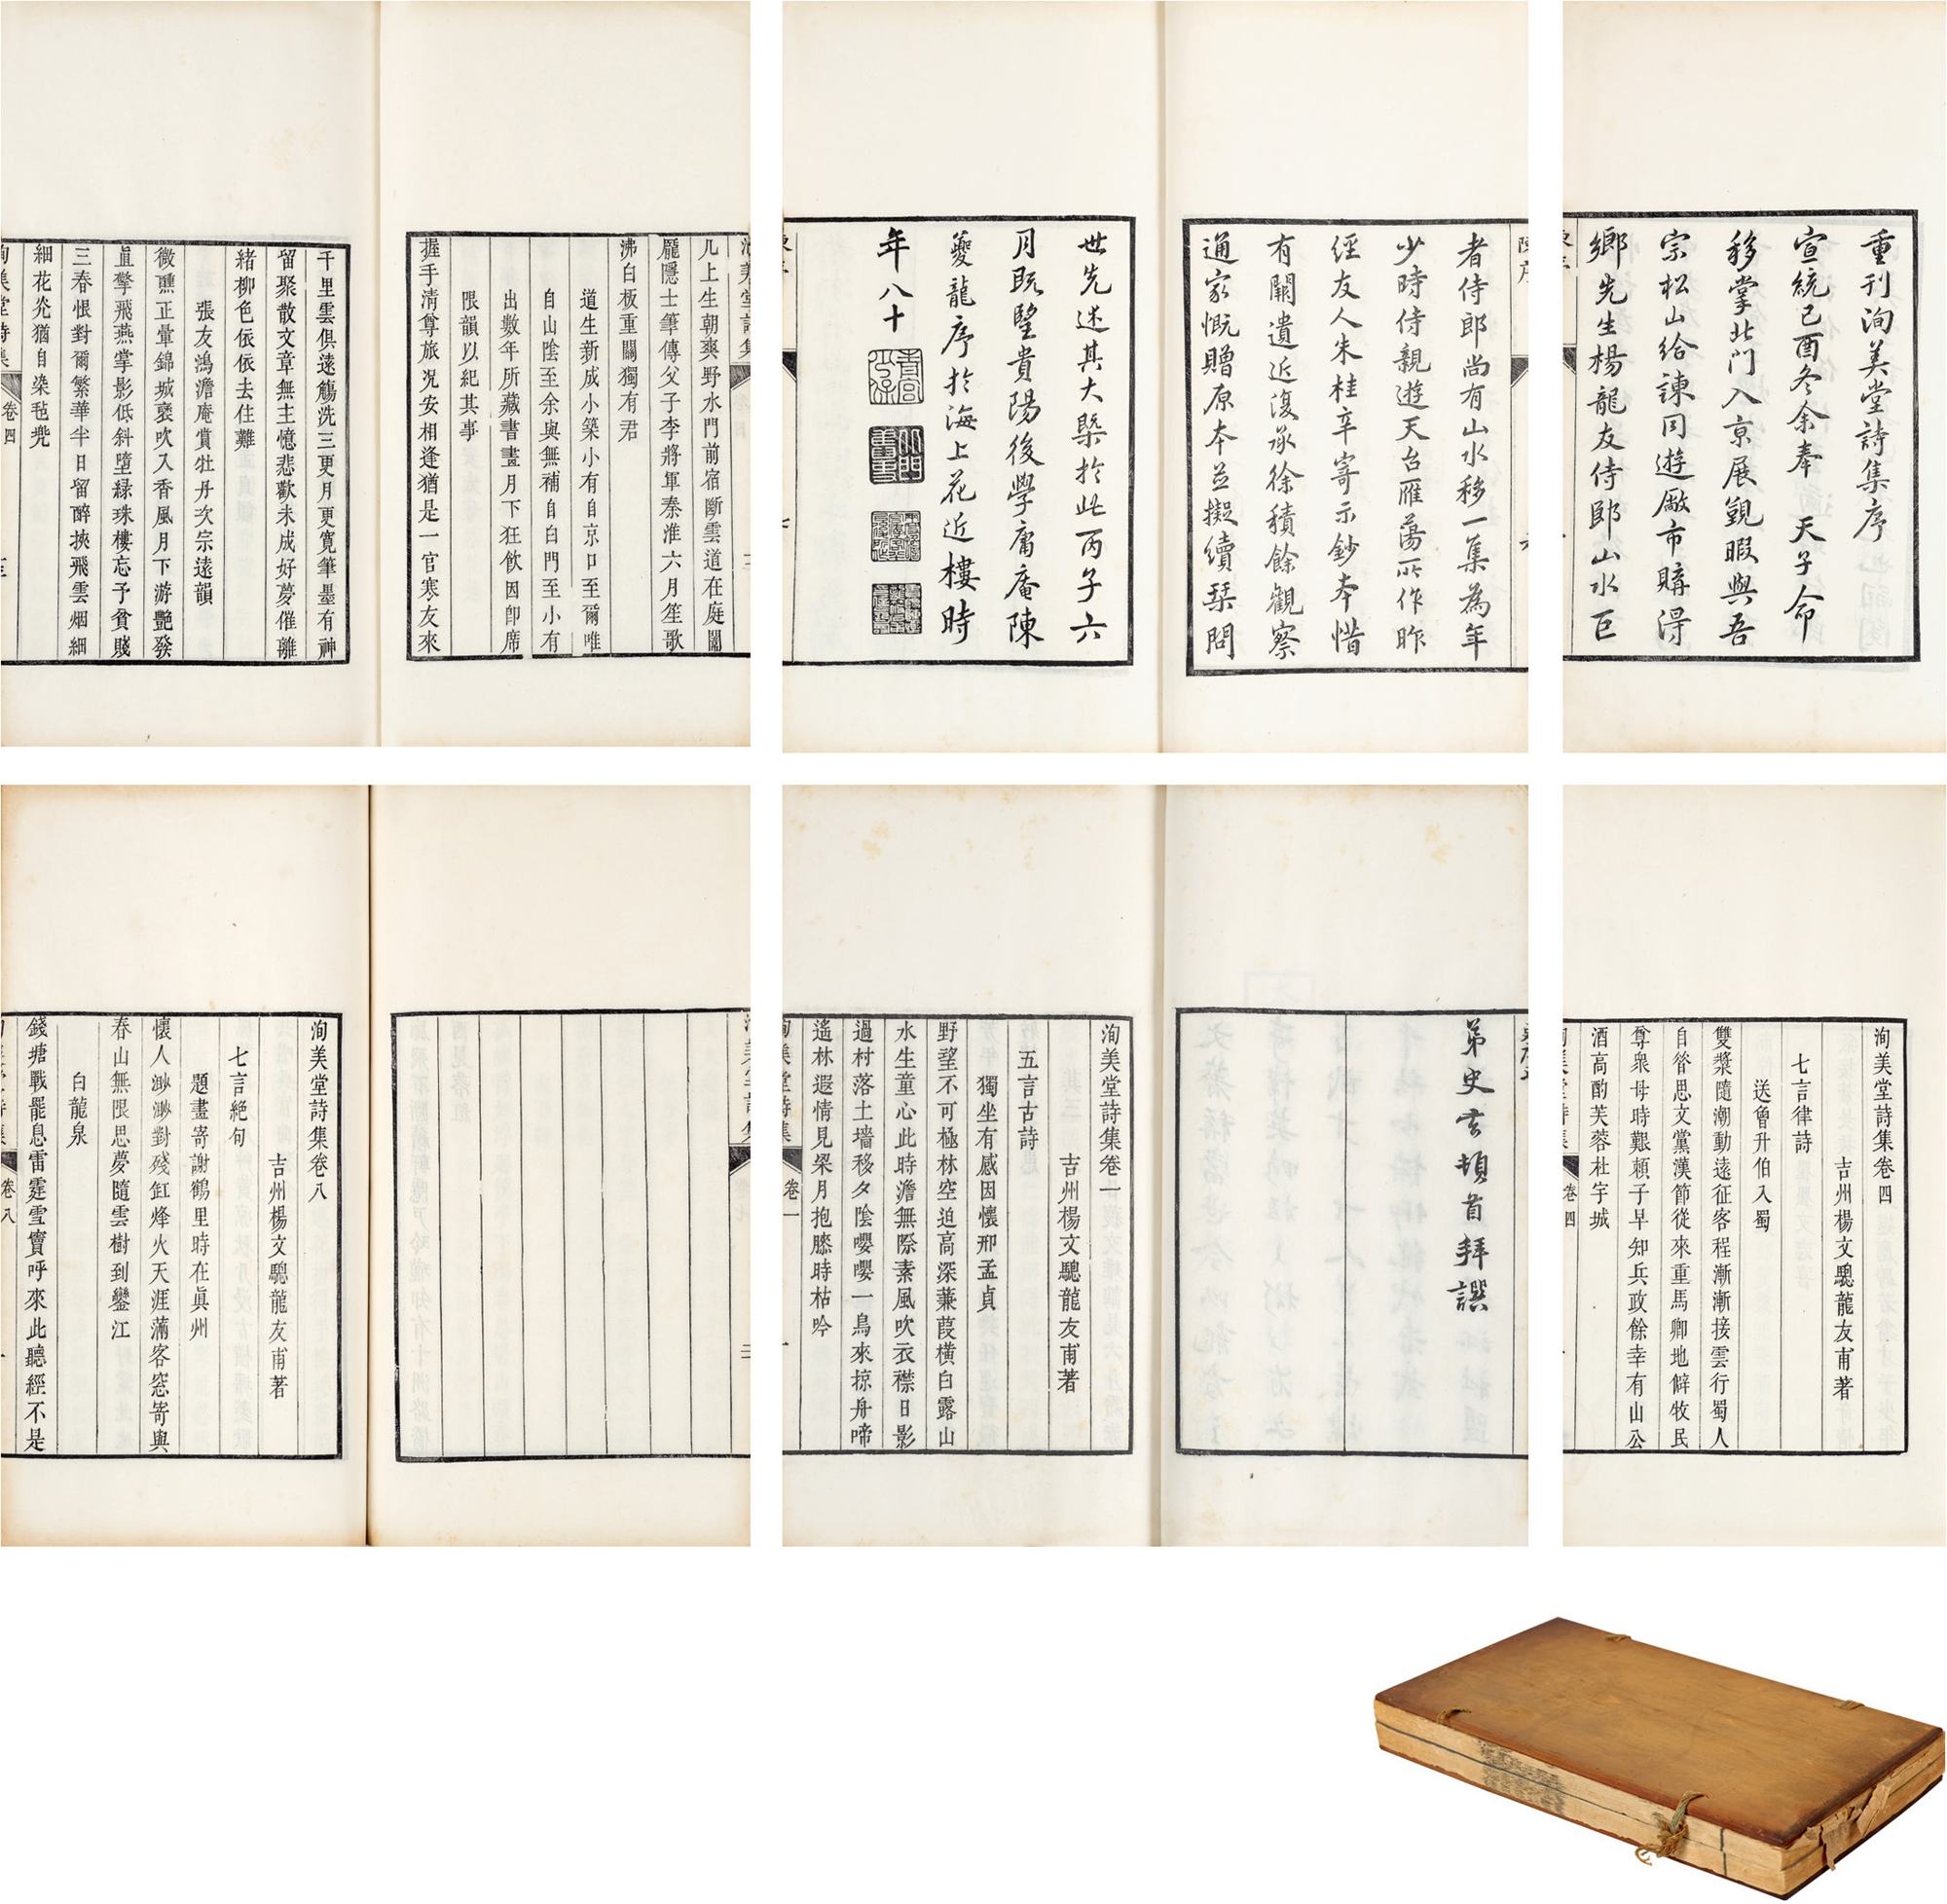 重刊洵美堂詩集序
宣統己酉冬余奉天子命
移掌北門入京展覲暇與吾
宗松山給諫同遊廠市購得
鄉先生楊龍友侍郎山水巨
者侍郎尚有山水移一集為年
少時侍親遊天台雁蕩所作昨
經友人朱桂辛寄示鈔本惜
有闕遺近復承徐積餘觀察
通家慨贈原本並擬續琹問
世先述其大槩於此丙子六
月既望貴陽後學庸庵陳
夔龍序於海上花近樓時
年八十
洵美堂詩集
几上生朝爽野水門前宿斷雲道在庭闈
龐隱士筆傳父子李將軍秦淮六月笙歌
沸白板重關獨有君
道生新成小築小有自京口至爾唯
自山陰至余與無補自白門至小有
出數年所藏書畫月下狂飲因卽席
限韻以紀其事
握手清尊旅況安相逢猶是一官寒友來
千里雲俱遠觴洗三更月更寛筆墨有神
留聚散文章無主憶悲歡未成好夢催離
緒柳色依依去住難
張友鴻澹庵賞牡丹次宗遠韻
微醺正暈錦城裹吹入香風月下游艷發
眞擎飛燕掌影低斜墮綠珠樓忘予貧賤
三春恨對爾繁華半日留醉挾飛雲烟細
細花光猶自染毡兠
洵美堂詩集
卷四
洵美堂詩集卷四
吉州楊文驄龍友甫著
七言律詩
送曾升伯入蜀
雙槳隨潮動遠征客程漸漸接雲行蜀人
自昝思文黨漢節從來重馬卿地僻牧民
尊衆母時艱頼子早知兵政餘幸有山公
酒高酌芙蓉杜宇城
洵美堂詩集
卷四
一
弟史玄頓首拜譔
洵美堂詩集卷一
吉州楊文驄龍友甫著
五言古詩
獨坐有感因懷邢孟貞
野望不可極林空迫高深蒹葭橫白露山
水生童心此時澹無際素風吹衣襟日影
過村落土墻移夕陰嚶嚶一鳥來掠舟啼
遙林遐情見梁月抱膝時枯吟
洵美堂詩集
卷一
一
洵美堂詩集卷八
吉州楊文驄龍友甫著
七言絶句
題畫寄謝鶴里時在眞州
懷人渺渺對殘缸烽火天涯滿客窓寄與
春山無限思夢隨雲樹到鑾江
白龍泉
錢塘戰罷息雷霆雪竇呼來此聽經不是
卷八
一